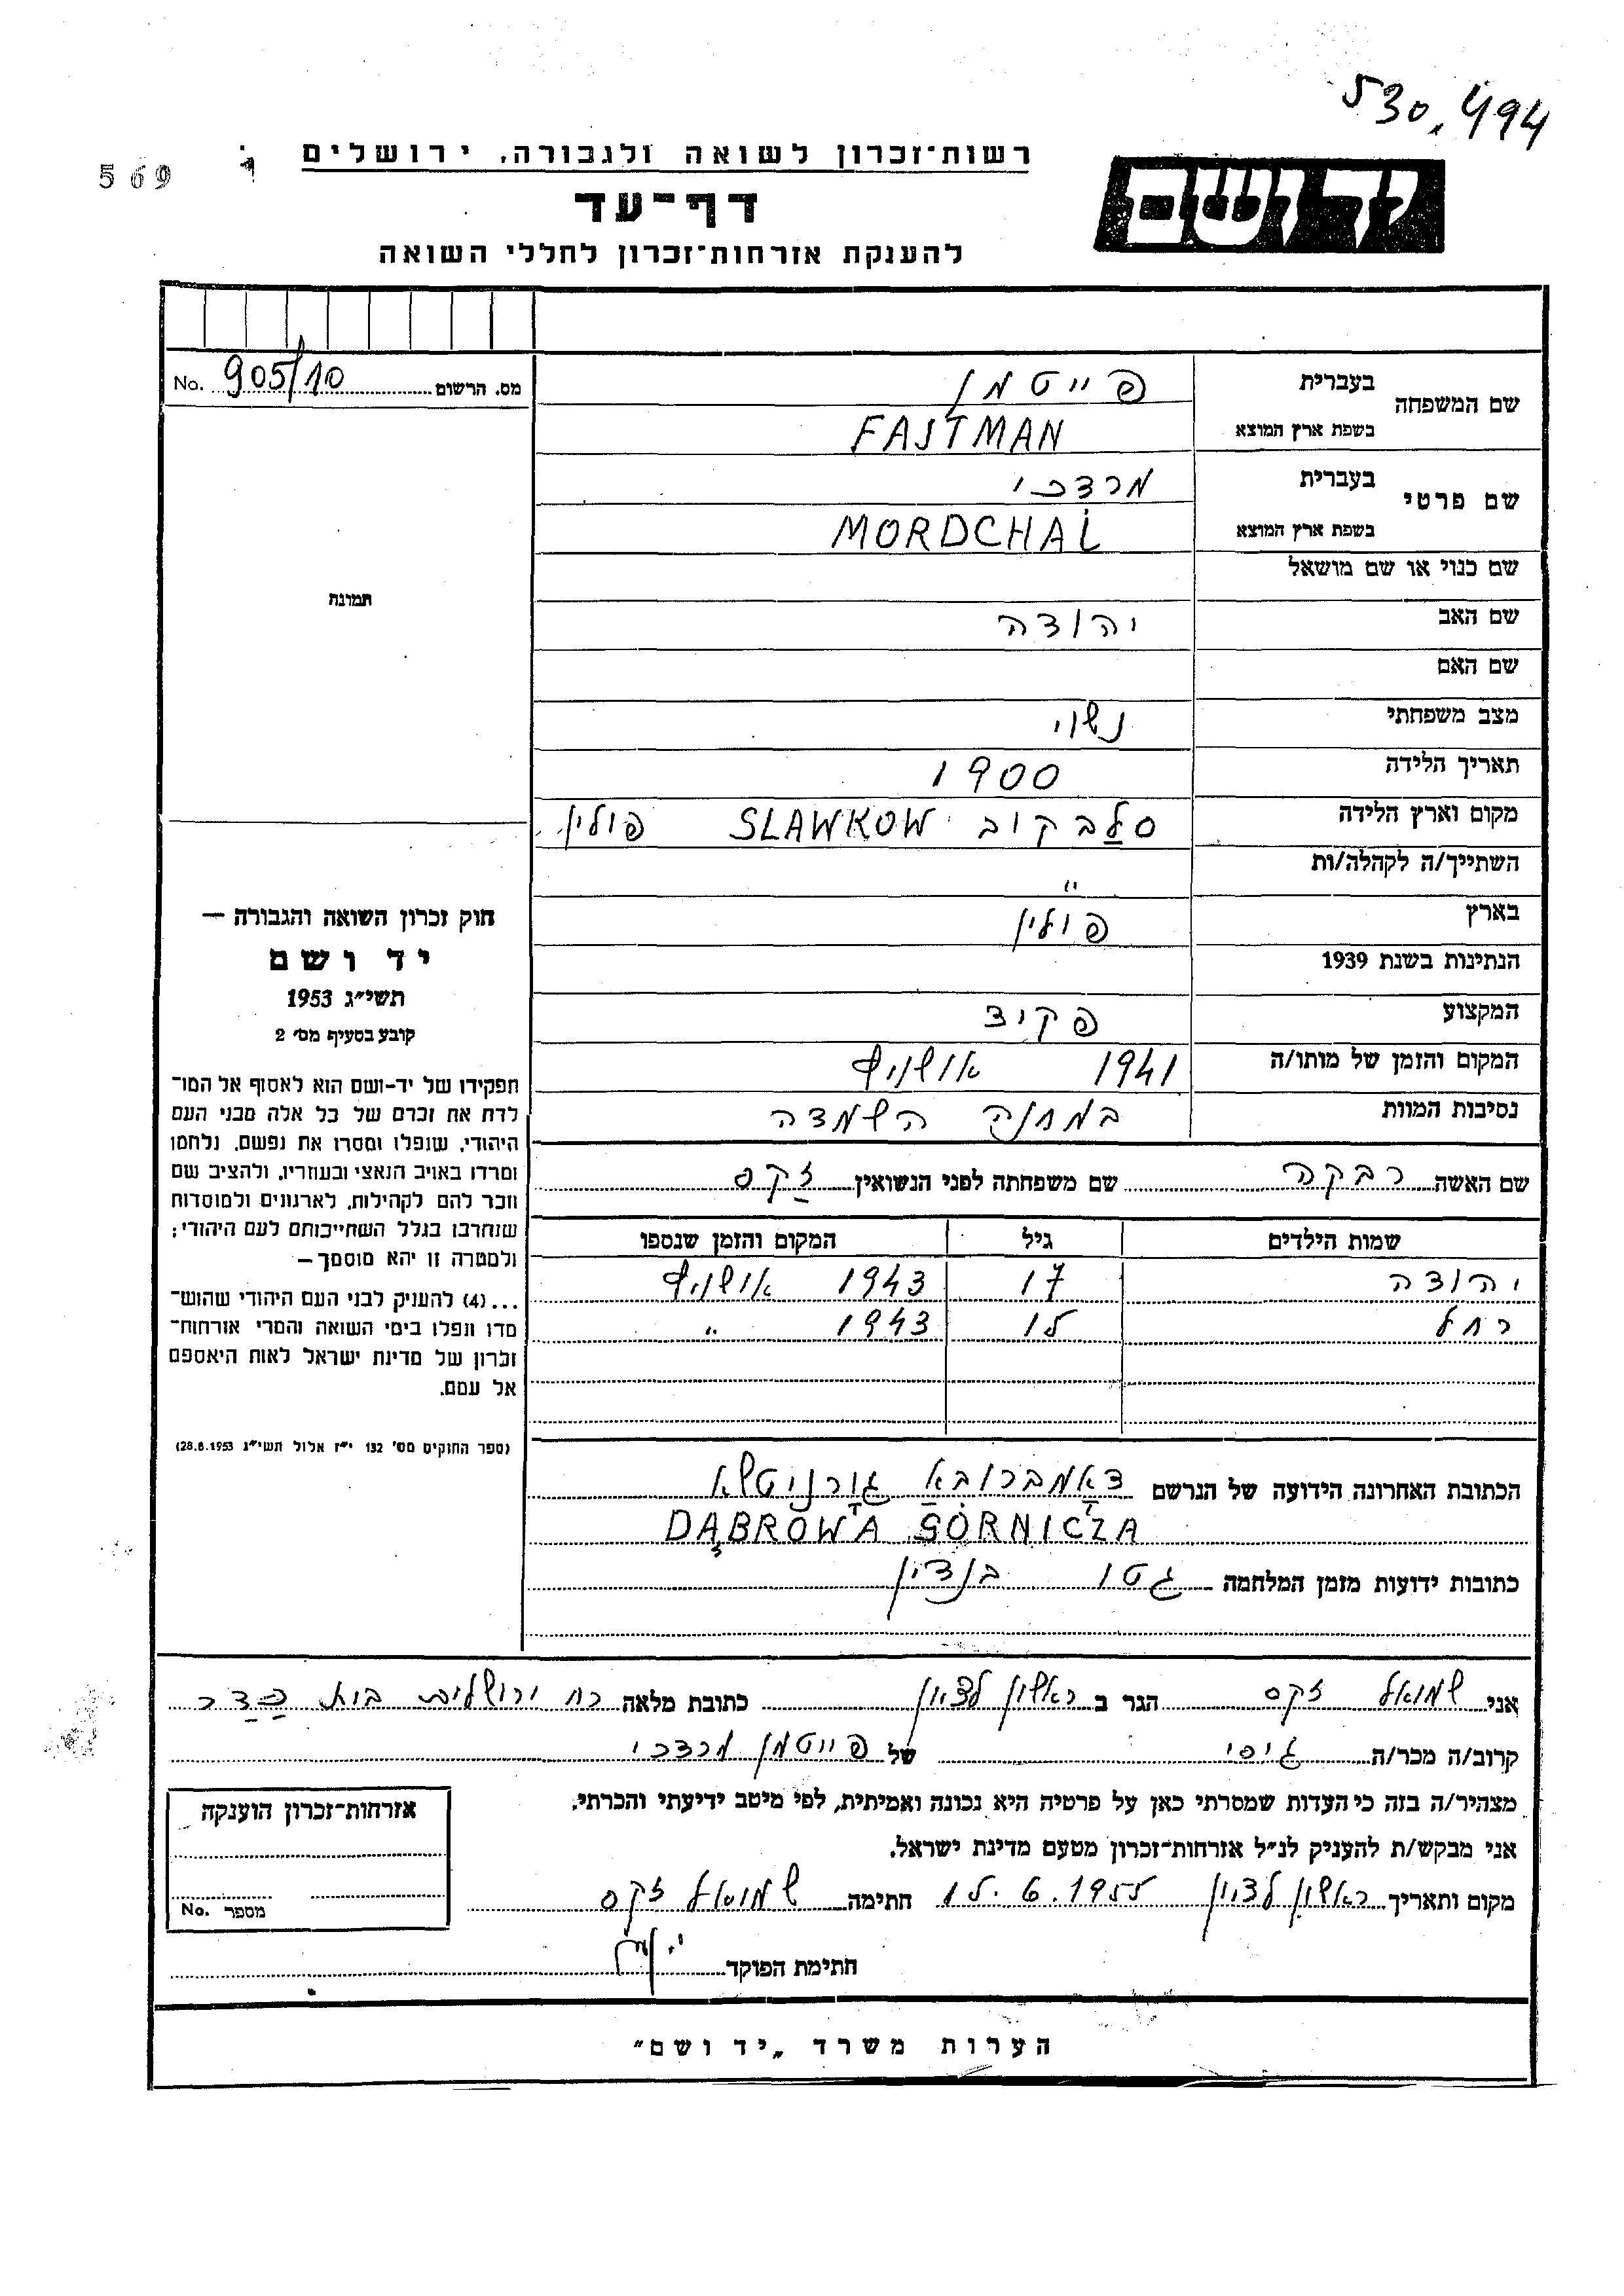 530.494
569 ף
רשות־זכרון לשואה ולגבורה, ירושלים
ידושם
דף־עד
להענקת אזרחות־זכרון לחללי השואה
מס. הרשום 905/10 No.
שם המשפחה בעברית פייטמן
בשפת ארץ המוצא FAJTMAN
שם פרטי בעברית מרדכי
בשפת ארץ המוצא MORDCHAI
שם כנוי או שם מושאל
שם האב יהודה
שם האם
מצב משפחתי נשוי
תאריך הלידה 1900
מקום וארץ הלידה סלבקוב SLAWKOW פולין
השתייך/ה לקהלה/ות "
בארץ פולין
הנתינות בשנת 1939
המקצוע פקיד
המקום והזמן של מותו/ה 1941 אושויץ
נסיבות המוות במחנה השמדה
שם האשה רבקה שם משפחתה לפני הנשואין זקס
שמות הילדים גיל המקום והזמן שנספו
יהודה 17 1943 אושויץ
רחל 15 1943 "
הכתובת האחרונה הידועה של הנרשם דאמברובא גורניטשא
DĄBROWA GÓRNICZA
כתובות ידועות מזמן המלחמה גטו בנדין
תמונה
חוק זכרון השואה והגבורה —
יד ושם
תשי״ג 1953
קובע בסעיף מס׳ 2
תפקידו של יד-ושם הוא לאסוף אל המו־
לדת את זכרם של כל אלה מבני העם
היהודי, שנפלו ומסרו את נפשם, נלחמו
ומרדו באויב הנאצי ובעוזריו, ולהציב שם
וזכר להם לקהילות, לארגונים ולמוסדות
שנחרבו בגלל השתייכותם לעם היהודי;
ולמטרה זו יהא מוסמך—
...(4) להעניק לבני העם היהודי שהוש־
מדו ונפלו בימי השואה והמרי אזרחות־
זכרון של מדינת ישראל לאות היאספם
אל עמם.
(ספר החוקים מס׳ 132 י״ז אלול תשי״ג 28.8.1953)
אני שמואל זקס הגר ב ראשון לציון כתובת מלאה רח ירושלים בית
קרוב/ה מכר/ה גיסי של פייטמן מרדכי
מצהיר/ה בזה כי העדות שמסרתי כאן על פרטיה היא נכונה ואמיתית, לפי מיטב ידיעתי והכרתי.
אני מבקש/ת להעניק לנ״ל אזרחות־זכרון מטעם מדינת ישראל.
מקום ותאריך ראשון לציון 15.6.1955 חתימה שמואל זקס
חתימת הפוקד
אזרחות־זכרון הוענקה
מספר No.
הערות משרד „יד ושם"